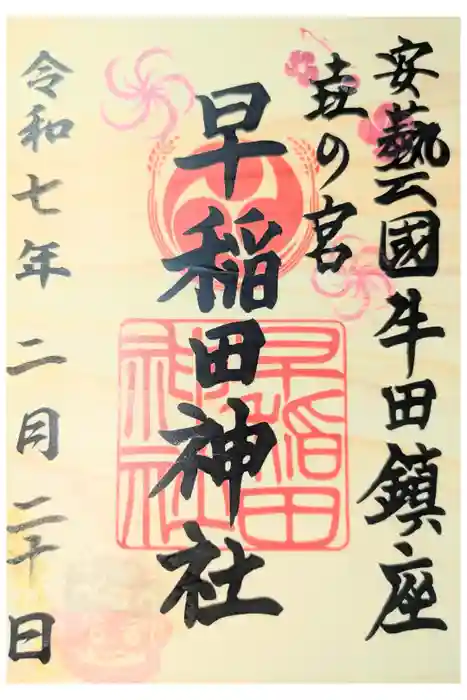 安藝國牛田鎮座
の宮
早稲田神社
早稲田
神社
令和七年二月二十日